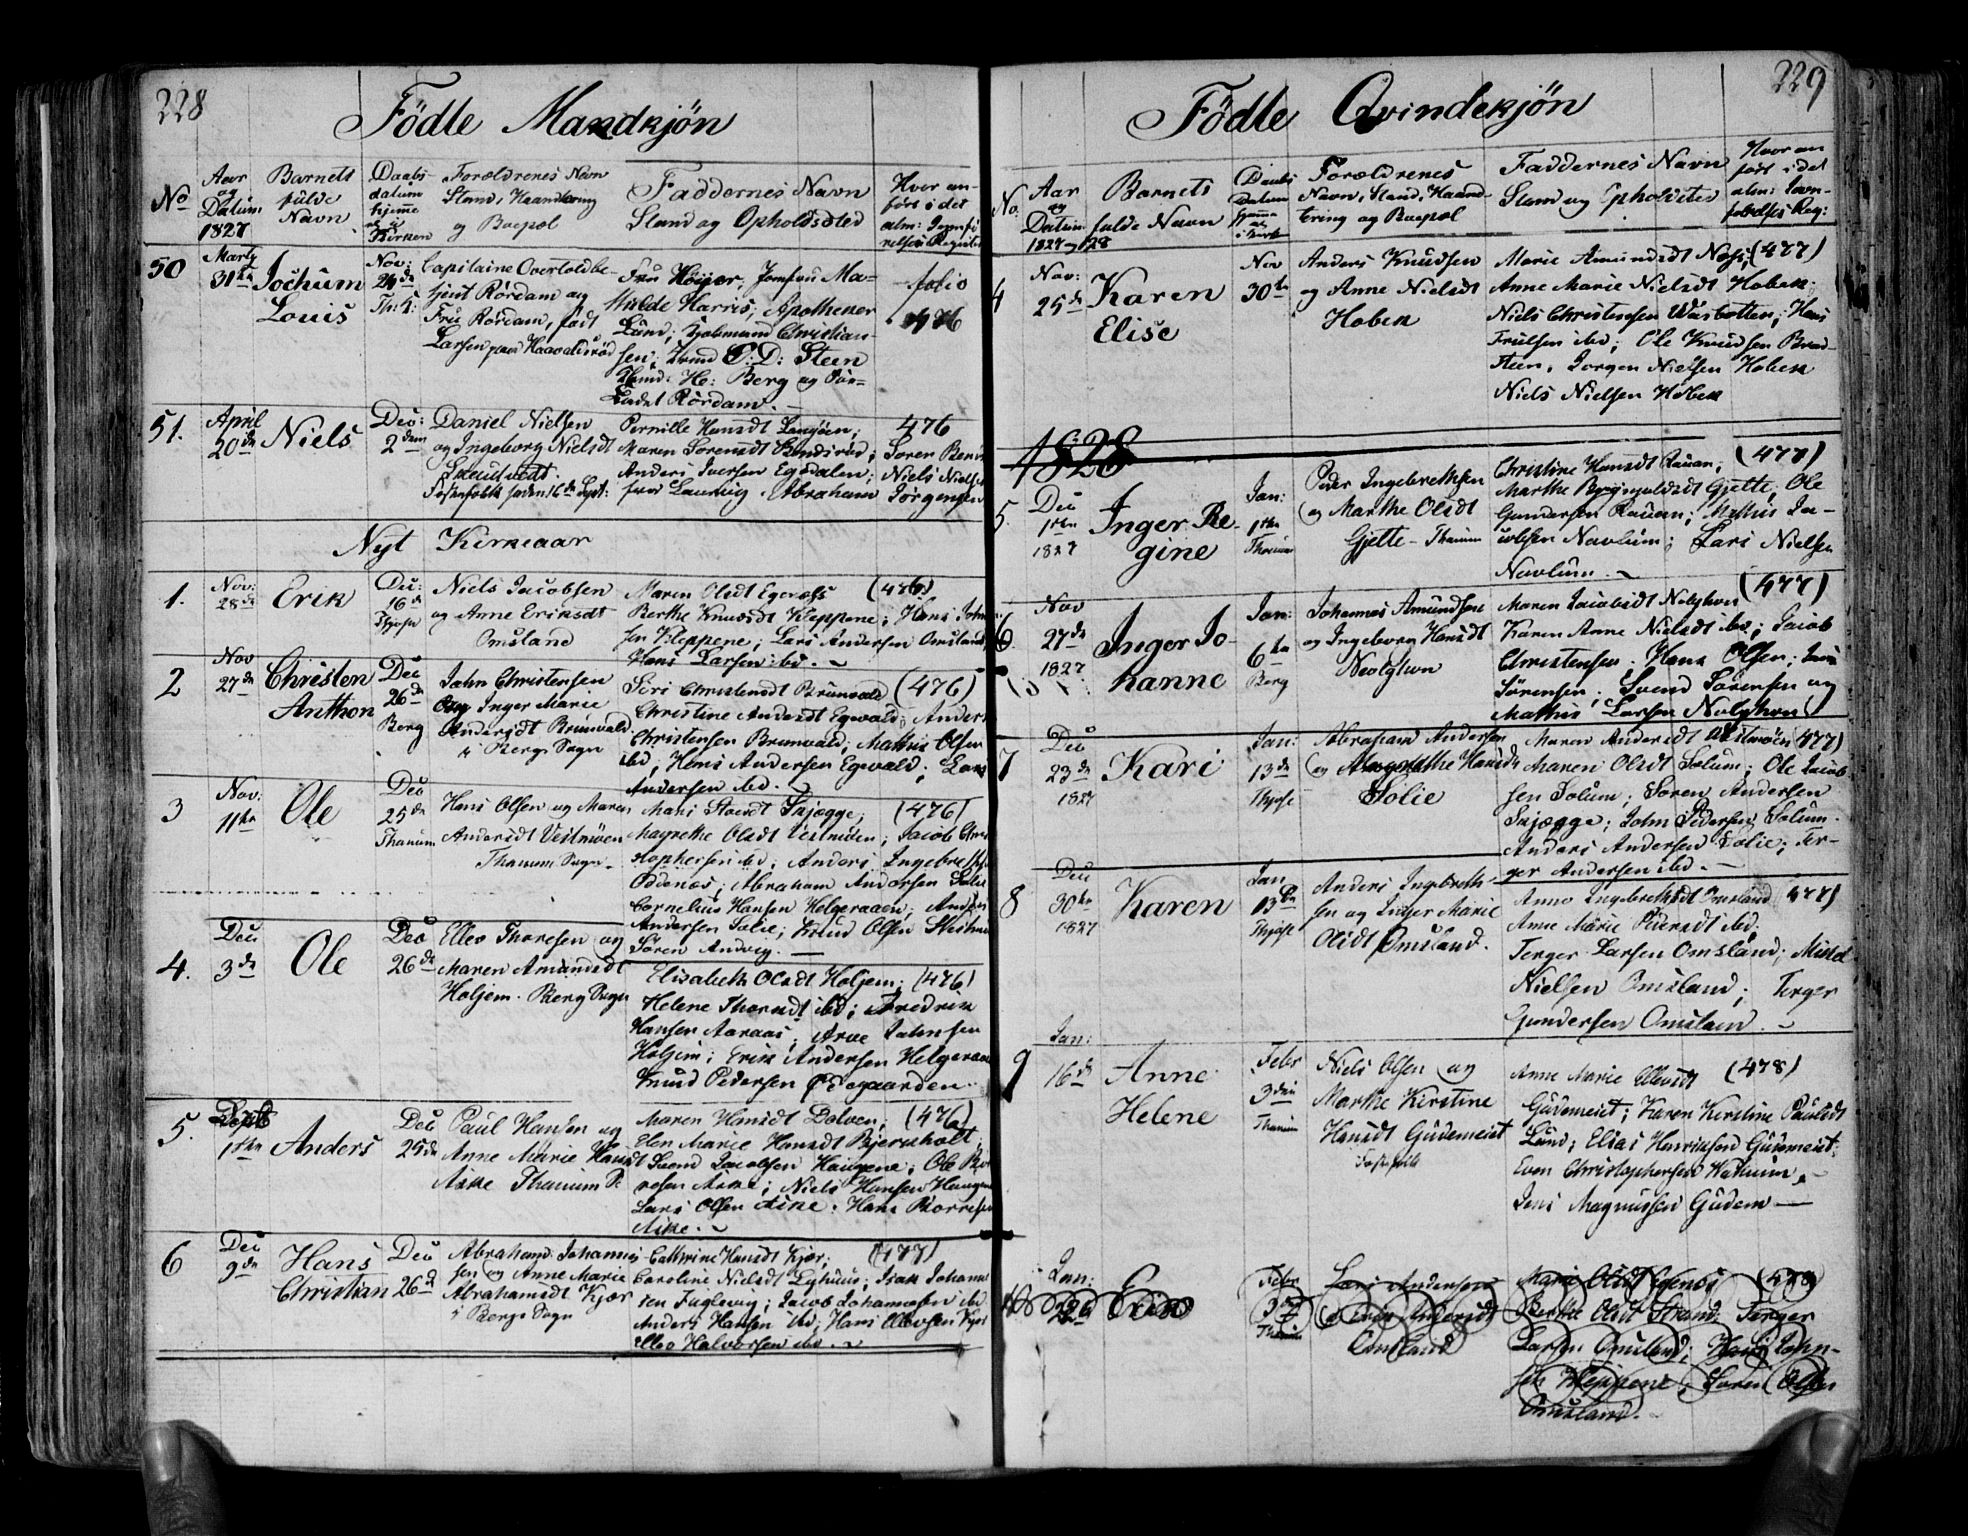 228
Födte Mandkjön
No
Aar og Datum 1827
Barnets fulde Navn
Daabs datum hjemme og i Kirken
Forældrenes Navn Stand, Haandtering og Boepæl
Faddernes Navn Stand og Opholdssted
Hvor anført i det alm: Jevnførelses Register
50
Marty 31te
Jochum
Louis
Nov:
Capitaine Overtoldbe-
tjent Rördam og
Fru Rördam, född
Larsen paa
Fru Höyer, Jomfru Ma-
thilde Harris; Apotheker
Lund; Christian-
sen; O: D: Steen
He: Berg og
Cadet Rördam.
folio
476
51.
April
20de
Niels
Dec:
2den
Daniel Nielsen
og Ingeborg Nielsdt
Pernille Hansdt
Maren Sörensdt
Anders Iversen Egedalen;
fra Laurvig. Abraham
476
Sören
Niels Nielsen
Jörgensen
Nyt Kirkeaar
1.
Nov:
28de
Erik
Dec:
16de
Thjöse
Niels Jacobsen
og Anne Eriksdt
Omsland
Maren Olsdt (476)
Berthe Knudsdt Kleppene; Hans John-
sen Kleppene; Lars Andersen Omsland
Hans Larsen ibd.
2
Nov
27de
Christen
Anthon
Dec
26de
Berg
John Christensen
og Inger Marie
Andersdt Brunvald
i Bergs Sogn
Siri Christensdt Brunvald (476)
Christine Andersdt Egvald; Anders
Christensen Brunvald; Mathis Olsen
ibd; Hans Andersen Egvald; Lars
Andersen ibd.
3
Nov:
11te
Ole
Dec
25de
Thanum
Hans Olsen og Maren
Andersdt Vestmöen
Thanum Sogn
Mari Skjægge; (476)
Magrethe Olsdt Vestmöen; Jacob Chri-
stophersen ibd; Anders Ingebretsen
Oddenæs; Abraham Andersen Solie
Cornelius Hansen Helgeraaen; Anders
Andersen Solie; Knud Olsen
Sören Andvig.
4.
Dec
3de
Ole
Dec
26de
Ellev Thoresen og
Maren Amundsdt
Holjem. Berg Sogn
Elisabeth Olsdt Holjem; (476)
Helene Thorsdt ibd; Fredrik
Hansen Aaraas; Arve Johnsen
Holjem; Erik Andersen Helgeraaen
Knud Pedersen Ödegaarden.
5.
Dec
1ste
Anders
Dec
25de
Paul Hansen og
Anne Marie Hansdt
Aske Thanum S.
Maren Hansdt Dolven; (476)
Elen Marie Hansdt Bjerkholt;
Svend Jacobsen Haugene; Ole Bor-
resen Aske; Niels Hansen Haugene
Lars Olsen Aske. Hans Borresen
Aske.
6
Dec
9de
Hans
Christian
Dec
26de
Abraham Johannes-
sen og Anne Marie
Abrahamsdt Kjær
i Bergs Sogn
Cathrine Hansdt Kjær; (477)
Caroline Nielsdt Isak Johanne-
sen Fuglevig; Jacob Johannesen ibd
Anders Hansen ibd; Hans Ellevsen
Ellev Halvorsen ibd.
229
Födte Qvindekjön
No.
Aar og Datum 1827 og 28
Barnets fulde Navn
Daabs Datum hjemme og i Kirke
Forældrenes Navn, Stand, Haandtering og Boepæl
Faddernes Navn Stand og Opholdsted
Hvor anfört i det alm: Jevnförelses Reg:
4
Nov:
25de
Karen
Elise
Nov
30te
Anders Knudsen
og Anne Nielsdt
Hobek
Marie Amundsdt (477)
Anne Marie Nielsdt Hobek;
Niels Christensen Hans
ibd; Ole Knudsen Brad-
steen, Jörgen Nielsen Hobek
Niels Nielsen Hobek
1828
5.
Dec
1ste
1827
Inger Re-
gine
Jan:
1ste
Thanum
Peder Ingebrethsen
og Marthe Olsdt
Gjette - Thanum
Christine Hansdt Rauan; (477)
Marthe Gjette; Ole
Gundersen Rauan; Mathis Ja-
cobsen Navlum; Lars Nielsen
Navlum.
6.
Nov
27de
1827
Inger Jo-
hanne
Jan:
6te
Berg
Johannes Amundsen
og Ingeborg Hansdt
Nolghvn
Maren Jacobsdt Nolghvn (477)
Karen Anne Nielsdt ibd; Jacob
Christensen; Hans Olsen;
Sörensen; Svend Sörensen og
Mathis Larsen Nolghvn
7
Dec
23de
1827
Kari
Jan:
13de
Thjöse
Abraham Andersen
og Magrethe Hansdt
Solie
Maren Andersdt Vestmöen (477)
Maren Olsdt Solum; Ole Jacob-
sen Solum; Sören Andersen
Skjægge; John Pedersen Solum.
Anders Andersen Solie; Ter-
ger Andersen ibd.
8
Dec
30te
1827
Karen
Jan
13de
Thjöse
Anders Ingebreth-
sen og Inger Marie
Olsdt Omsland.
Anne Ingebrethsdt Omsland (477)
Anne Marie Pedersdt ibd;
Terger Larsen Omsland; Mikkel
Nielsen Omsland; Terger
Gundersen Omsland.
9
Jan:
16de
Anne
Helene
Febr
3die
Thanum
Niels Olsen og
Marthe Kirstine
Hansdt Gudemeiet
Anne Marie Ellevsdt (478)
Gudemeiet; Karen Kirstine Paulsdt
Lund; Elias Henriksen Gudemeiet;
Even Christophersen
Jens Magnussen Gudem
10
Jan:
26
Erik
Febr
3die
Thanum
Lars Andersen
og Andersdt
Omsland
Marie Olsdt (478)
Berthe Olsdt Strand; Terger
Larsen Omsland; Hans John-
sen Kleppene; Sören Olsen
Omsland.